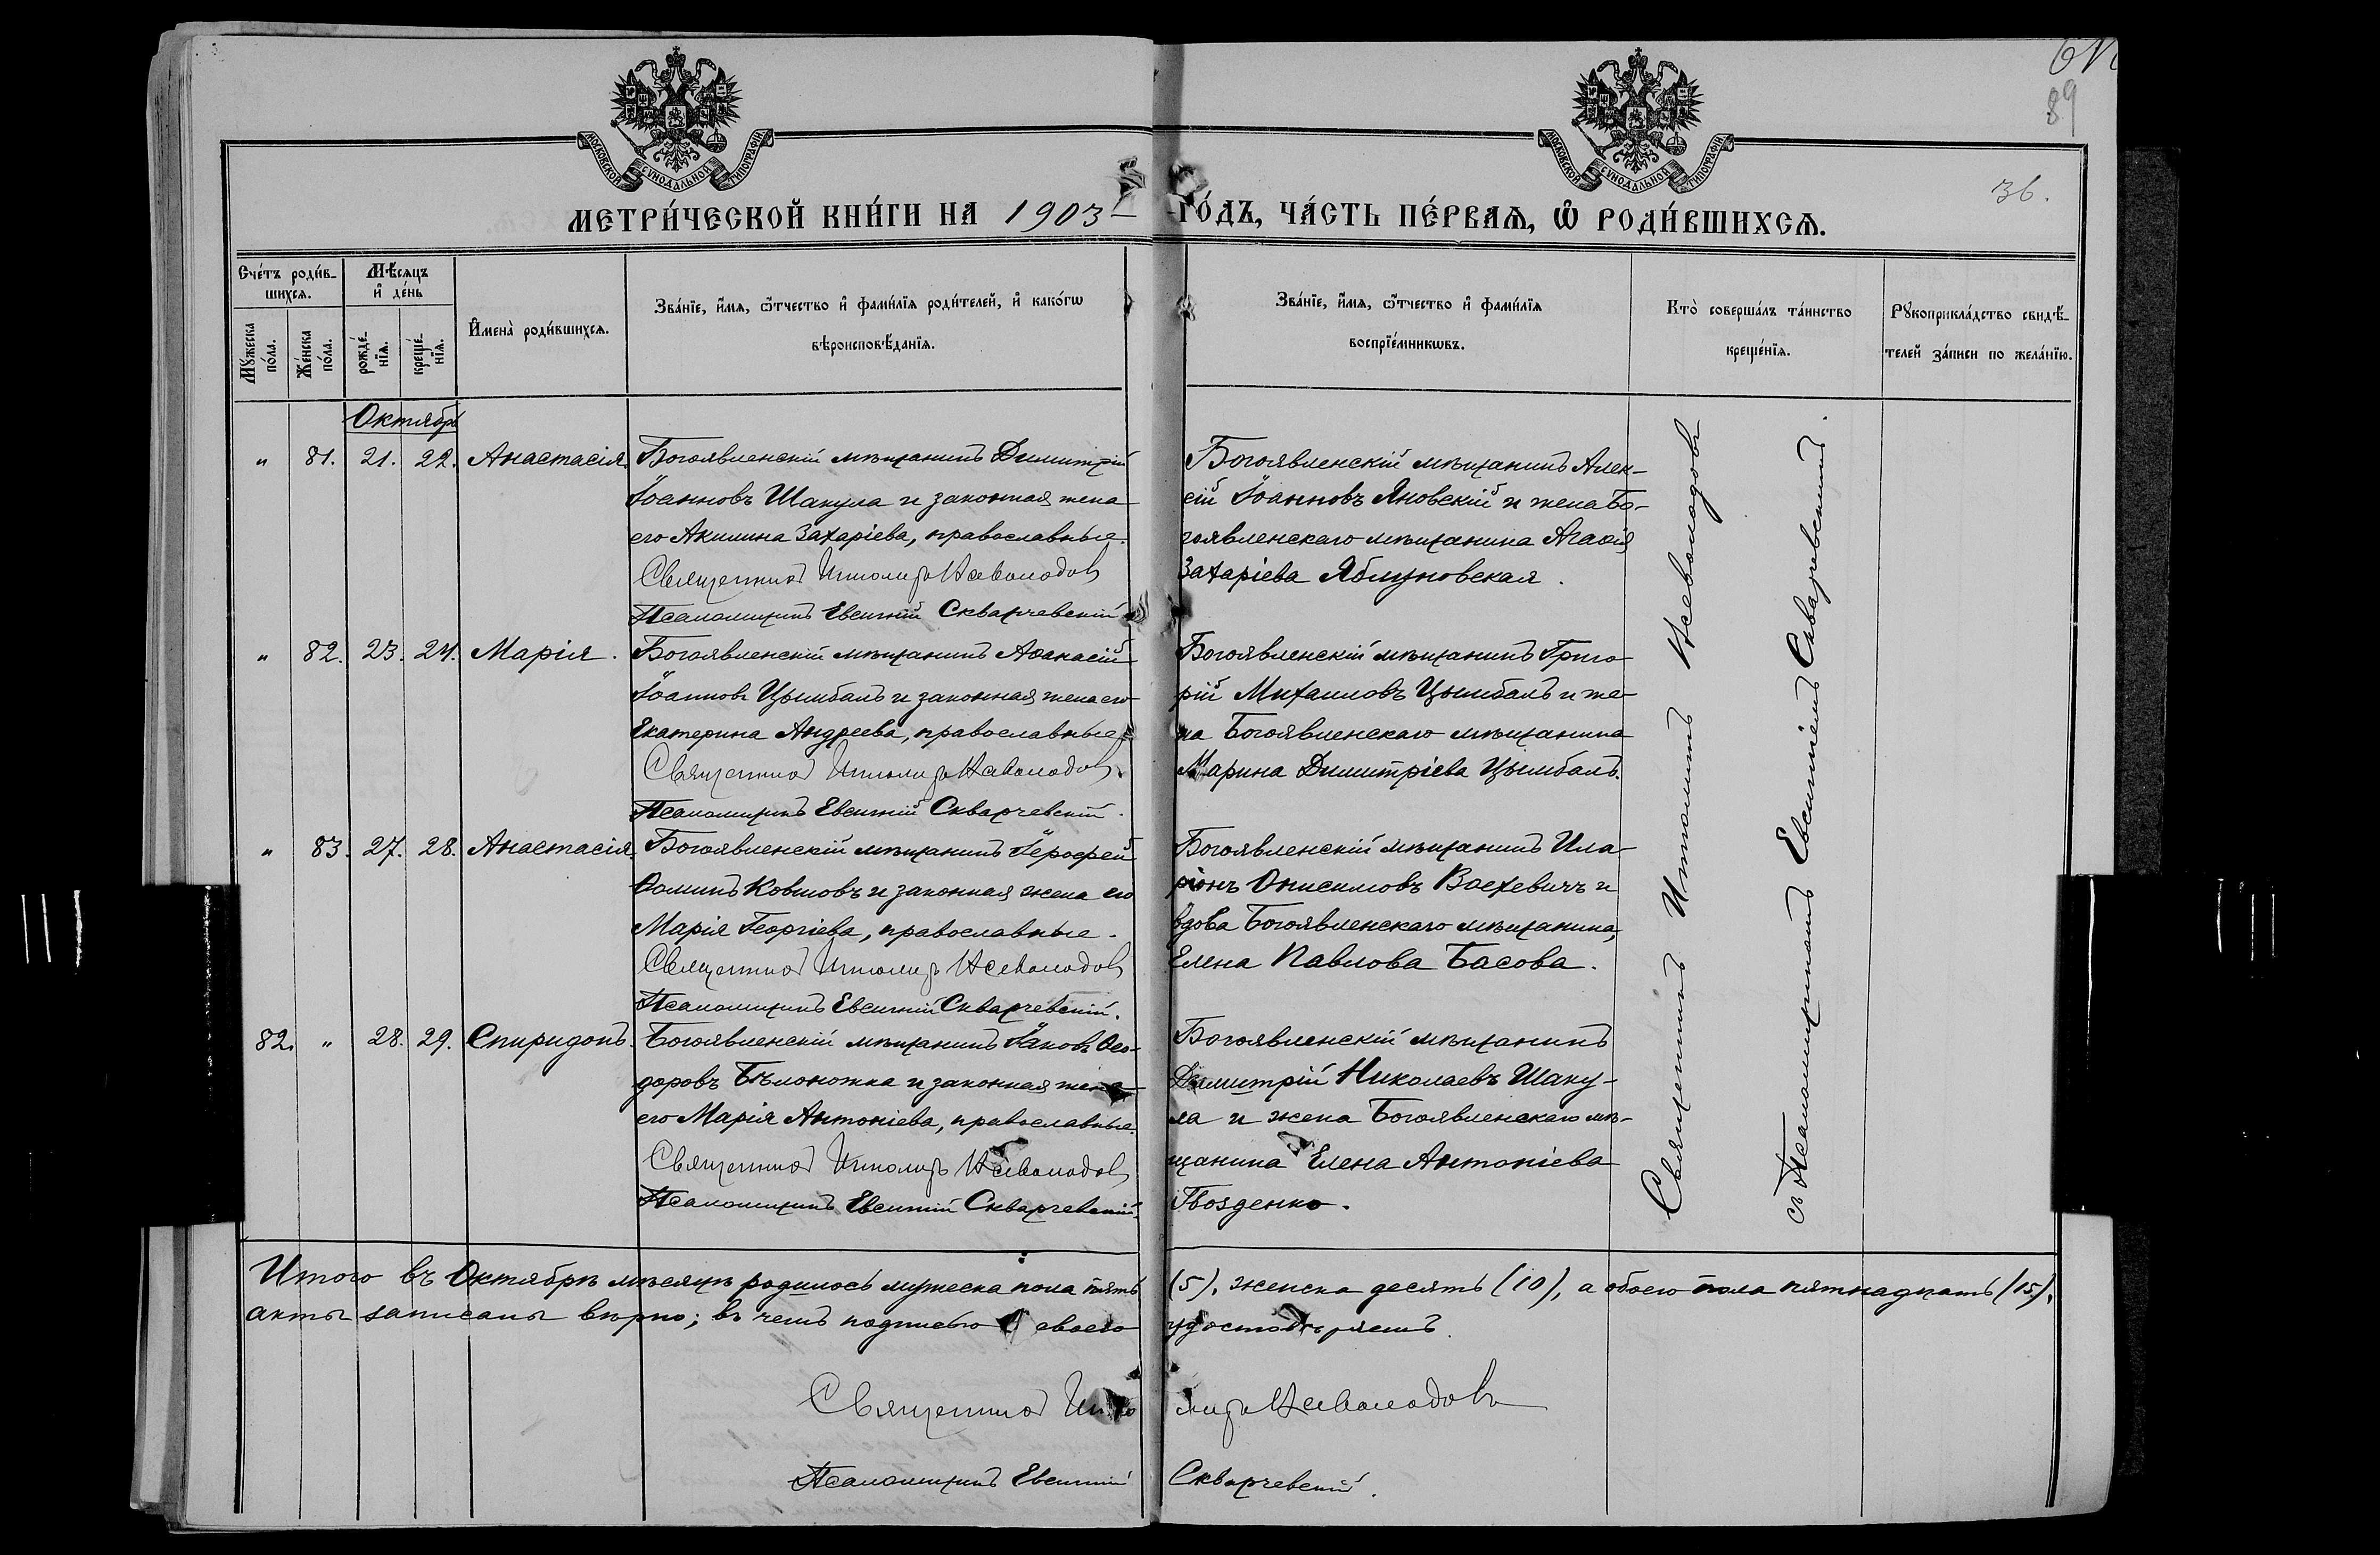 89
МОСКОВСКОЙ СѴНОДАЛЬНОЙ ТИПОГРАФІИ
МОСКОВСКОЙ СѴНОДАЛЬНОЙ ТИПОГРАФІИ
36.
МЕТРИ́ЧЕСКОЙ КНИ́ГИ НА 1903 ГО́ДЪ, ЧА́СТЬ ПЕ́РВАѦ, Ѡ РОДИ́ВШИХСѦ.
Сче́тъ роди́в-
шихсѧ.
Мꙋ́жеска по́ла.
Же́нска по́ла.
Мѣ́сѧцъ
и҆ де́нь
рожде́-
нїѧ.
креще́-
нїѧ.
И҆мена̀ роди́вшихсѧ.
Зва́нїе, и҆́мѧ, ѻ҆́тчество и҆ фами́лїѧ роди́телей, и҆ како́гѡ
вѣроисповѣ́данїѧ.
Зва́нїе, и҆́мѧ, ѻ҆́тчество и҆ фами́лїѧ
воспрїе́мникѡвъ.
Кто̀ соверша́лъ та́инство
креще́нїѧ.
Рꙋкоприкла́дство свидѣ́-
телей за́писи по жела́нїю.
Октябрь
" 81. 21. 22. Анастасія.
Богоявленскій мѣщанинъ Димитрій
Іоанновъ Шакула и законная жена
его Акилина Захаріева, православные.
Священникъ Ипполитъ Всеволодовъ
Псаломщикъ Евгеній Скварчевскій
Богоявленскій мѣщанинъ Алек-
сій Іоанновъ Яновскій и жена Бо-
гоявленскаго мѣщанина Агаѳія
Захаріева Яблуновская.
" 82. 23. 24. Марія.
Богоявленскій мѣщанинъ Аѳанасій
Іоанновъ Цымбалъ и законная жена его
Екатерина Андреева, православные.
Священникъ Ипполитъ Всеволодовъ.
Псаломщикъ Евгеній Скварчевскій.
Богоявленскій мѣщанинъ Григо-
рій Михаиловъ Цымбалъ и же-
на Богоявленскаго мѣщанина
Марина Димитріева Цымбалъ.
" 83. 27. 28. Анастасія.
Богоявленскій мѣщанинъ Іерофей
Ѳоминъ Ковшовъ и законная жена его
Марія Георгіева, православные.
Священникъ Ипполитъ Всеволодовъ
Псаломщикъ Евгеній Скварчевскій.
Богоявленскій мѣщанинъ Ила-
ріонъ Онисимовъ и
вдова Богоявленскаго мѣщанина,
Елена Павлова Басова.
82. " 28. 29. Спиридонъ.
Богоявленскій мѣщанинъ Іаковъ Ѳео-
доровъ Бѣлоножка и законная жена
его Марія Антоніева, православные.
Священникъ Ипполитъ Всеволодовъ
Псаломщикъ Евгеній Скварчевскій.
Богоявленскій мѣщанинъ
Димитрій Николаевъ Шаку-
ла и жена Богоявленскаго мѣ-
щанина Елена Антоніева
Гвозденко.
Священникъ Ипполитъ Всеволодовъ
съ Псаломщикомъ Евгеніемъ Скварчевскимъ.
Итого въ Октябрѣ мѣсяцѣ родилось мужеска пола пять (5), женска десять (10), а обоего пола пятнадцать (15),
акты записаны вѣрно; въ чемъ подписью своею удостовѣряемъ.
Священникъ Ипполитъ Всеволодовъ
Псаломщикъ Евгеній Скварчевскій.